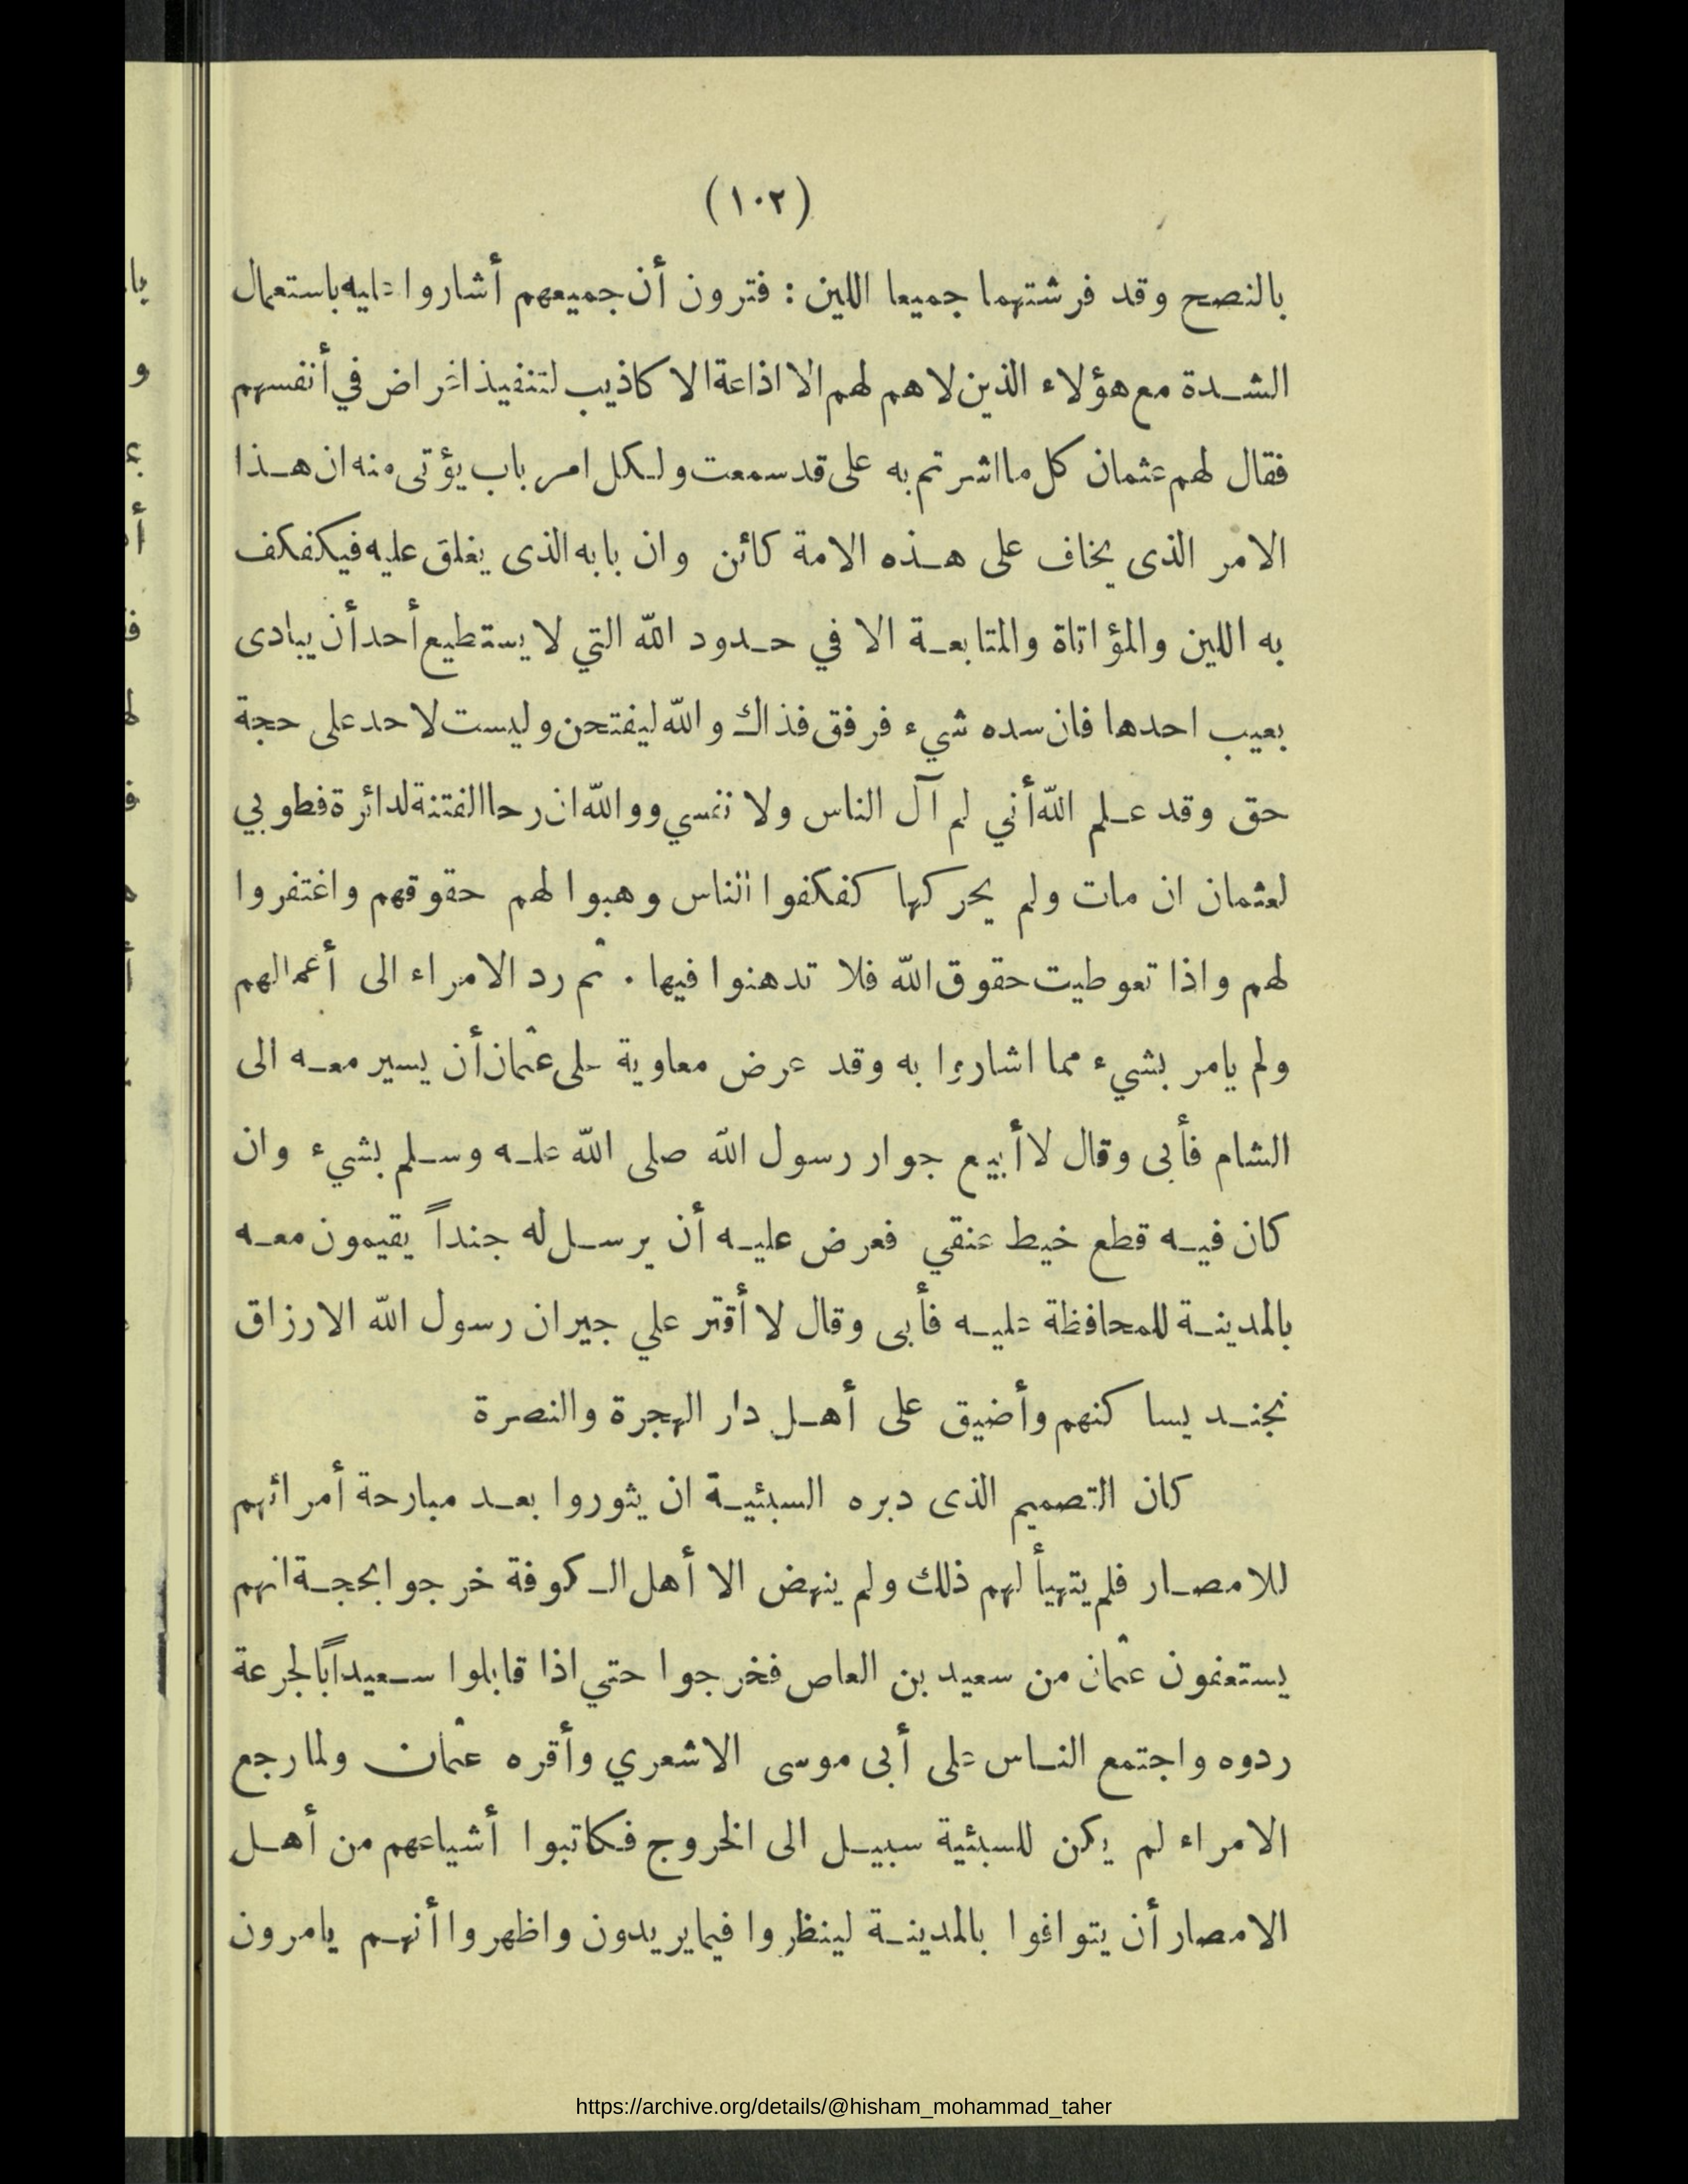 (١٠٢)
بالنصح وقد فرشتهما جميعا اللين : فترون أن جميعهم أشاروا عليه باستعمال
الشدة مع هؤلاء الذين لا هم لهم الا اذاعة الاكاذيب لتنفيذ اغراض في أنفسهم
فقال لهم عثمان كل ما اشرتم به على قد سمعت ولكل امر باب يؤتى منه ان هذا
الامر الذى يخاف على هذه الامة كائن وان بابه الذى يغلق عليه فيكفكف
به اللين والمؤاتاة والمتابعة الا في حدود الله التي لا يستطيع أحد أن يبادى
بعيب احدها فان سده شيء فرفق فذاك والله ليفتحن وليست لاحد على حجة
حق وقد علم الله أني لم آل الناس ولا نفسي ووالله ان رحا الفتنة لدائرة فطوبي
لعثمان ان مات ولم يحركها كفكفوا الناس وهبوا لهم حقوقهم واغتفروا
لهم واذا تعوطيت حقوق الله فلا تدهنوا فيها . ثم رد الامراء الى أعمالهم
ولم يامر بشيء مما اشاروا به وقد عرض معاوية على عثمان أن يسير معه الى
الشام فأبى وقال لا أبيع جوار رسول الله صلى الله عليه وسلم بشيء وان
كان فيه قطع خيط عنقي فعرض عليه أن يرسل له جنداً يقيمون معه
بالمدينة للمحافظة عليه فأبى وقال لا أقتر علي جيران رسول الله الارزاق
بجند يساكنهم وأضيق على أهل دار الهجرة والنصرة
كان التصميم الذى دبره السبئية ان يثوروا بعد مبارحة أمرائهم
للامصار فلم يتهيأ لهم ذلك ولم ينهض الا أهل الكوفة خرجوا بحجة انهم
يستعفون عثمان من سعيد بن العاص فخرجوا حتي اذا قابلوا سعيداً بالجرعة
ردوه واجتمع الناس على أبى موسى الاشعري وأقره عثمان ولما رجع
الامراء لم يكن للسبئية سبيل الى الخروج فكاتبوا أشياعهم من أهل
الامصار أن يتوافوا بالمدينة لينظروا فيما يريدون واظهروا أنهم يامرون
https://archive.org/details/@hisham_mohammad_taher